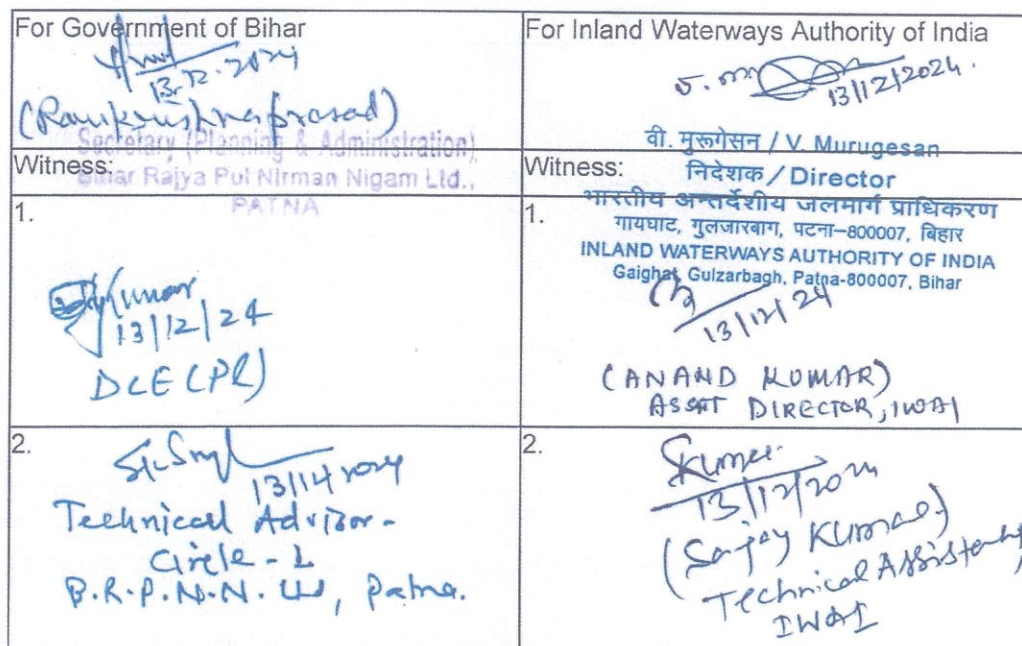 For Government of Bihar
13.12.2024
(Ramkrishna prasad)
Secretary (Planning & Administration)
Bihar Rajya Pul Nirman Nigam Ltd.,
PATNA
Witness:
1.
Kumar
13/12/24
2.
13/12/2024
Technical Advisor-
Circle-
B.R.P.N.N. Ltd, Patna.
For Inland Waterways Authority of India
13/12/2024.
वी. मुरूगेसन / V. Murugesan
निदेशक / Director
भारतीय अन्तर्देशीय जलमार्ग प्राधिकरण
गायघाट, गुलजारबाग, पटना-800007, बिहार
INLAND WATERWAYS AUTHORITY OF INDIA
Gaighat, Gulzarbagh, Patna-800007, Bihar
Witness:
1.
13/12/24
(ANAND KUMAR)
ASSTT DIRECTOR, IWAI
2.
SKumar
13/12/2024
(Sanjay Kumar)
Technical Assistant,
IWAI